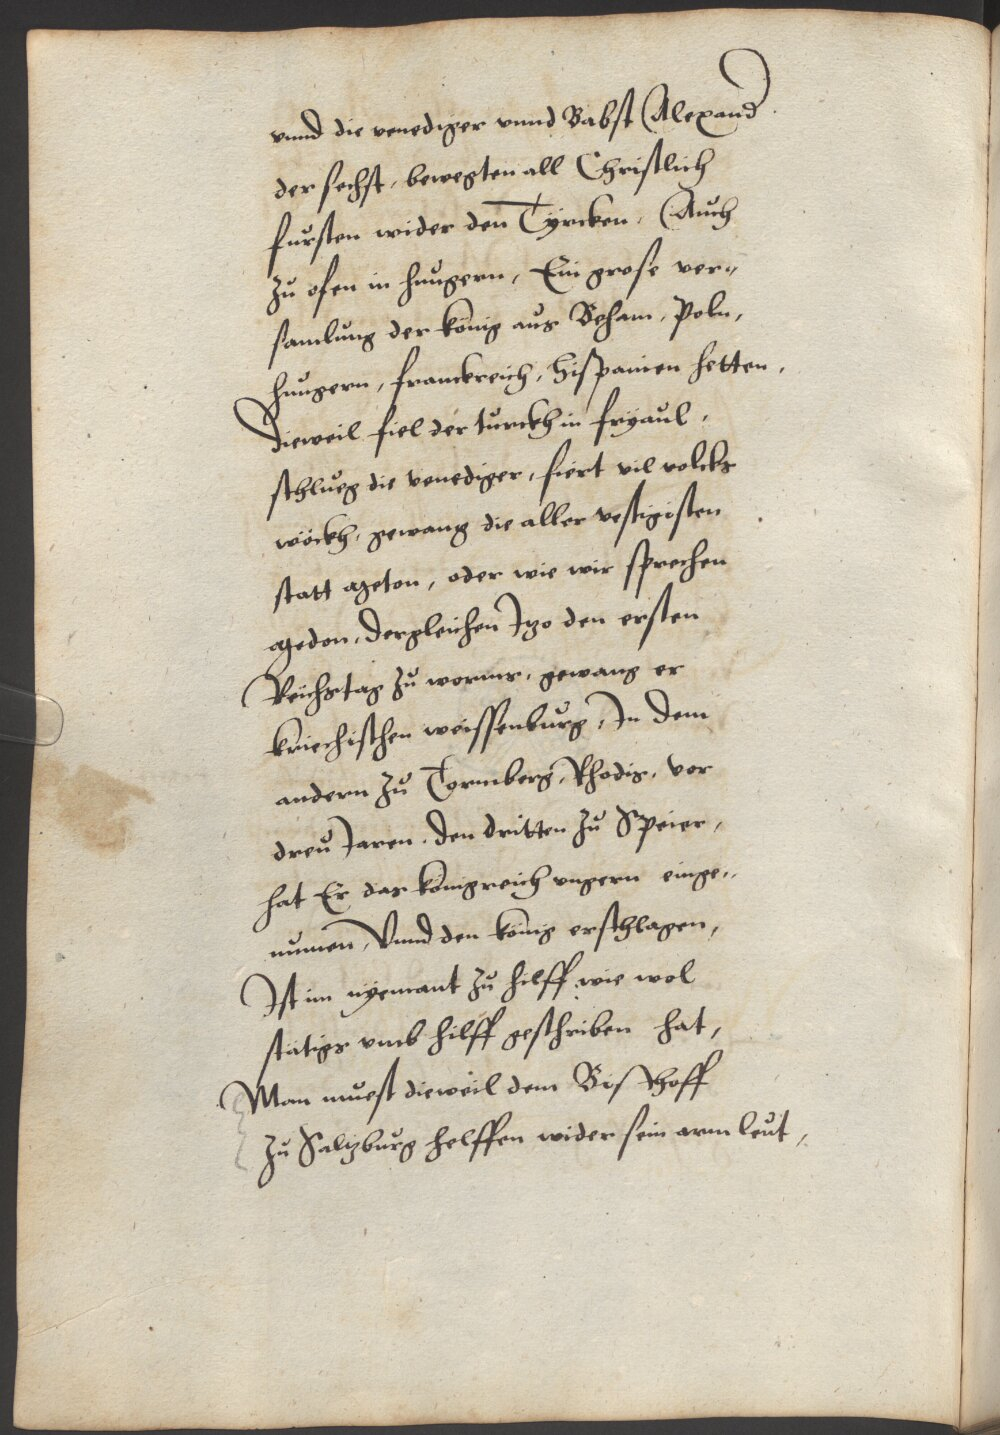 vnnd die venediger vnnd Babst Alexand
der sechst, bewegten all Christlich
fursten wider den Tyrcken, Auch
zů ofen in hungern, Ein grose ver„
samlůng der könig aus Beham, Poln,
hungern, franckreich, Hispanien hetten,
dieweil fiel der turckh in fryaul,
schlueg die venediger, fiert vil volcks
wöckh, gewang die aller vestigisten
statt ageton, oder wie wir sprechen
agedon, dergleichen Jzo den ersten
Reichstag zů worms, gewang er
kriechischen weissenburg, In dem
andern zů Normberg, Rhodis, vor
dreu Jaren, den dritten zů Speier,
hat Er das königreich vngern einge„
numen, Vnnd den könig erschlagen,
Ist im nyemant zů hilff, wie wol
stätigs vmb hilff geschriben hat,
Man muest dieweil dem Bischoff
zů Saltzburg helffen wider sein arm leut,